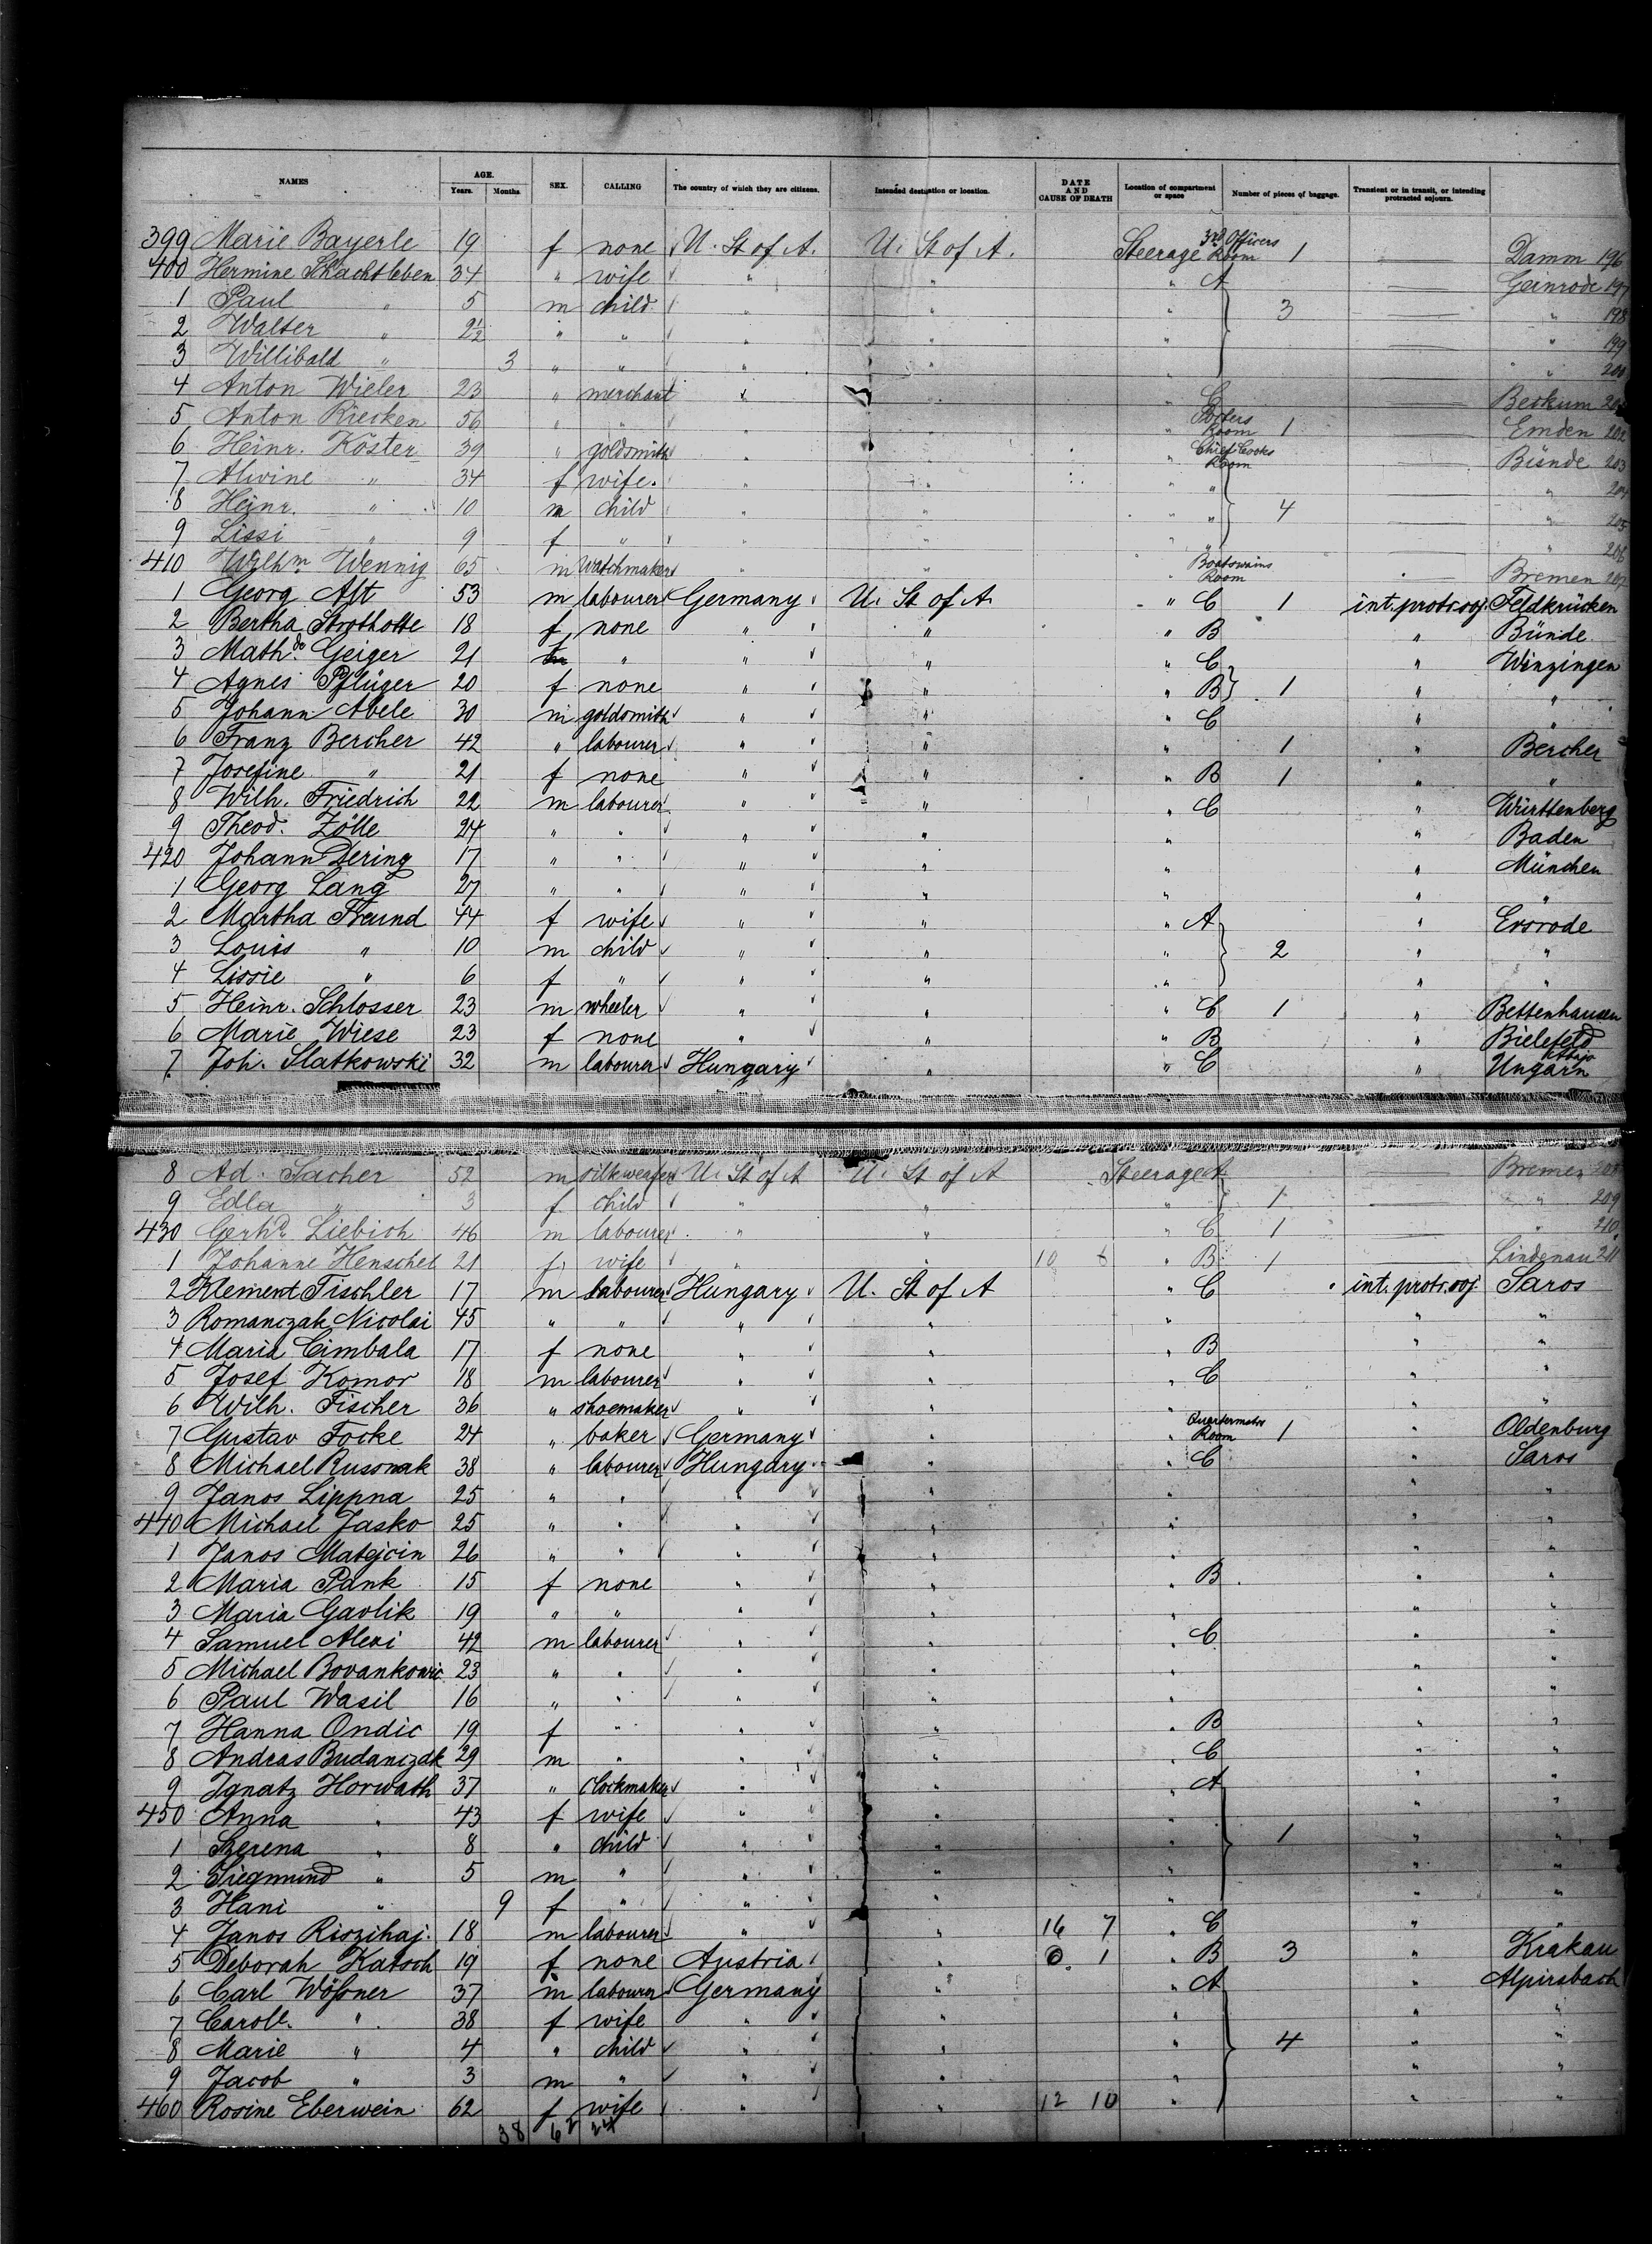 NAMES AGE. SEX. CALLING The country of which they are citizens. Intended destination or location. DATE AND CAUSE OF DEATH Location of compartment or space Number of pieces of baggage. Transient or in transit, or intending protracted sojourn.
Years. Months.
399 Marie Bayerle 19 f none U. St of A. U. St of A. Steerage 3rd Officers Room 1 — Damm 196
400 Hermine Schachtleben 34 " wife " " " A — Geinrode 197
1 Paul " 5 m child " " " 3 — " 198
2 Walter " 2½ " " " " " — " 199
3 Willibald " 3 " " " " " — " 200
4 Anton Wieler 23 " merchant " " " C — Beckum 201
5 Anton Riecken 56 " " " " " Porters Room 1 — Emden 202
6 Heinr. Köster 39 " goldsmith " " " Chief Cooks Room — Bünde 203
7 Alwine " 34 f wife. " " " " — " 204
8 Heinr. " 10 m child " " " " 4 — " 205
9 Lissi " 9 f " " " " " — " 206
410 Wilhm Wennig 65 m watchmaker " " " Boatswains Room — Bremen 207
1 Georg Alt 53 m labourer Germany U. St of A. " C 1 int. protr. soj. Feldkrücken
2 Bertha Strothotte 18 f none " " " B " Bünde
3 Mathde Geiger 21 " " " " C " Winzingen
4 Agnes Pflüger 20 f none " " " B 1 " "
5 Johann Abele 30 m goldsmith " " " C " "
6 Franz Bercher 42 " labourer " " " 1 " Bercher
7 Josefine " 21 f none " " " B 1 " "
8 Wilh. Friedrich 22 m labourer " " " C " Württenberg
9 Theod. Zölle 24 " " " " " " Baden
420 Johann Dering 17 " " " " " " München
1 Georg Lang 27 " " " " " " "
2 Martha Freund 44 f wife " " " A " Ersrode
3 Louis " 10 m child " " " 2 " "
4 Lissie " 6 f " " " " " "
5 Heinr. Schlosser 23 m wheeler " " " C 1 " Bettenhausen
6 Marie Wiese 23 f none " " " B " Bielefeld
7 Joh. Slatkowski 32 m labourer Hungary " " C " Ungarn
8 Ad. Sacher 52 m silkweafer U. St of A U. St of A Steerage A — Bremen 208
9 Edla " 3 f child " " " 1 — " 209
430 Gerhd Liebich 46 m labourer " " " C 1 — " 210
1 Johanne Henschel 21 f. wife " " 10 " B 1 — Lindenau 211
2 Klement Tischler 17 m labourer Hungary U. St of A " C int. protr. soj Saros
3 Romanczak Nicolai 45 " " " " " " "
4 Maria Cimbala 17 f none " " " B " "
5 Josef Komor 18 m labourer " " " C " "
6 Wilh. Fischer 36 " shoemaker " " " " "
7 Gustav Focke 24 " baker Germany " " Quartermstrs Room 1 " Oldenburg
8 Michael Russnak 38 " labourer Hungary " " C " Saros
9 Janos Lippna 25 " " " " " " "
440 Michael Jasko 25 " " " " " " "
1 Janos Matejcin 26 " " " " " " "
2 Maria Pank 15 f none " " " B " "
3 Maria Gavlik 19 " " " " " " "
4 Samuel Alexi 42 m labourer " " " C " "
5 Michael Bovankowic 23 " " " " " " "
6 Paul Wasil 16 " " " " " " "
7 Hanna Ondic 19 f " " " " B " "
8 Andras Budanczak 29 m " " " " C " "
9 Ignatz Horwath 37 " clockmaker " " " A " "
450 Anna " 43 f wife " " " " "
1 Szerena " 8 " child " " " 1 " "
2 Siegmund " 5 m " " " " " "
3 Hani " 9 f " " " " " "
4 Janos Riszihaj. 18 m labourer " " 16 7 " C " "
5 Deborah Katsch 19 f none Austria " 1 " B 3 " Krakau
6 Carl Wößner 37 m labourer Germany " " A " Alpirsbach
7 Carole. " 38 f wife " " " " "
8 Marie " 4 " child " " " 4 " "
9 Jacob " 3 m " " " " " "
460 Rosine Eberwein 62 f wife " " 12 10 " " "
38 62 24